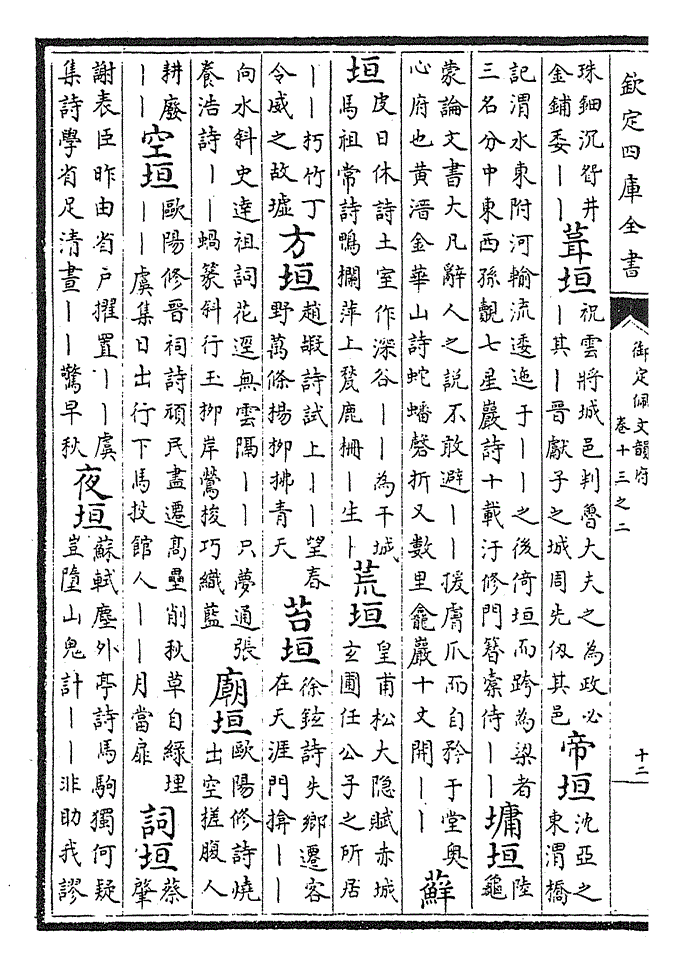 欽定四庫全書
御定佩文韻府
卷十三之二
十二
珠鈿沉眢井
金鋪委丨丨
葺垣
祝雲將城邑判魯大夫之為政必
丨其丨晉獻子之城周先仭其邑
帝垣
沈亞之
東渭橋
記渭水東附河輸流逶迤于丨丨之後倚垣而跨為梁者
三名分中東西孫覿七星巖詩十載汙修門簪橐侍丨丨
墉垣
陸
龜
蒙論文書大凡辭人之說不敢避丨丨援膚爪而自矜于堂奥
心府也黃溍金華山詩蛇蟠磬折又數里龕巖十丈開丨丨
蘚
垣
皮日休詩土室作深谷丨丨為干城
馬祖常詩鴨攔萍上甃鹿柵丨生丨
荒垣
皇甫松大隐賦赤城
玄圃任公子之所居
丨丨朽竹丁
令威之故墟
方垣
趙嘏詩試上丨丨望春
野萬條楊柳拂青天
苔垣
徐鉉詩失鄉遷客
在天涯門揜丨丨
向水斜史達祖詞花逕無雲隔丨丨只夢通張
養浩詩丨丨蝸篆斜行玉柳岸鶯梭巧織藍
廟垣
歐陽修詩燒
出空槎腹人
耕廢
丨丨
空垣
歐陽修晉祠詩頑民盡遷髙壘削秋草自綠埋
丨丨虞集日出行下馬投館人丨丨月當扉
詞垣
蔡
肇
謝表臣昨由省户擢置丨丨虞
集詩學省足清晝丨丨驚早秋
夜垣
蘇軾塵外亭詩馬駒獨何疑
豈墮山鬼計丨丨非助我謬